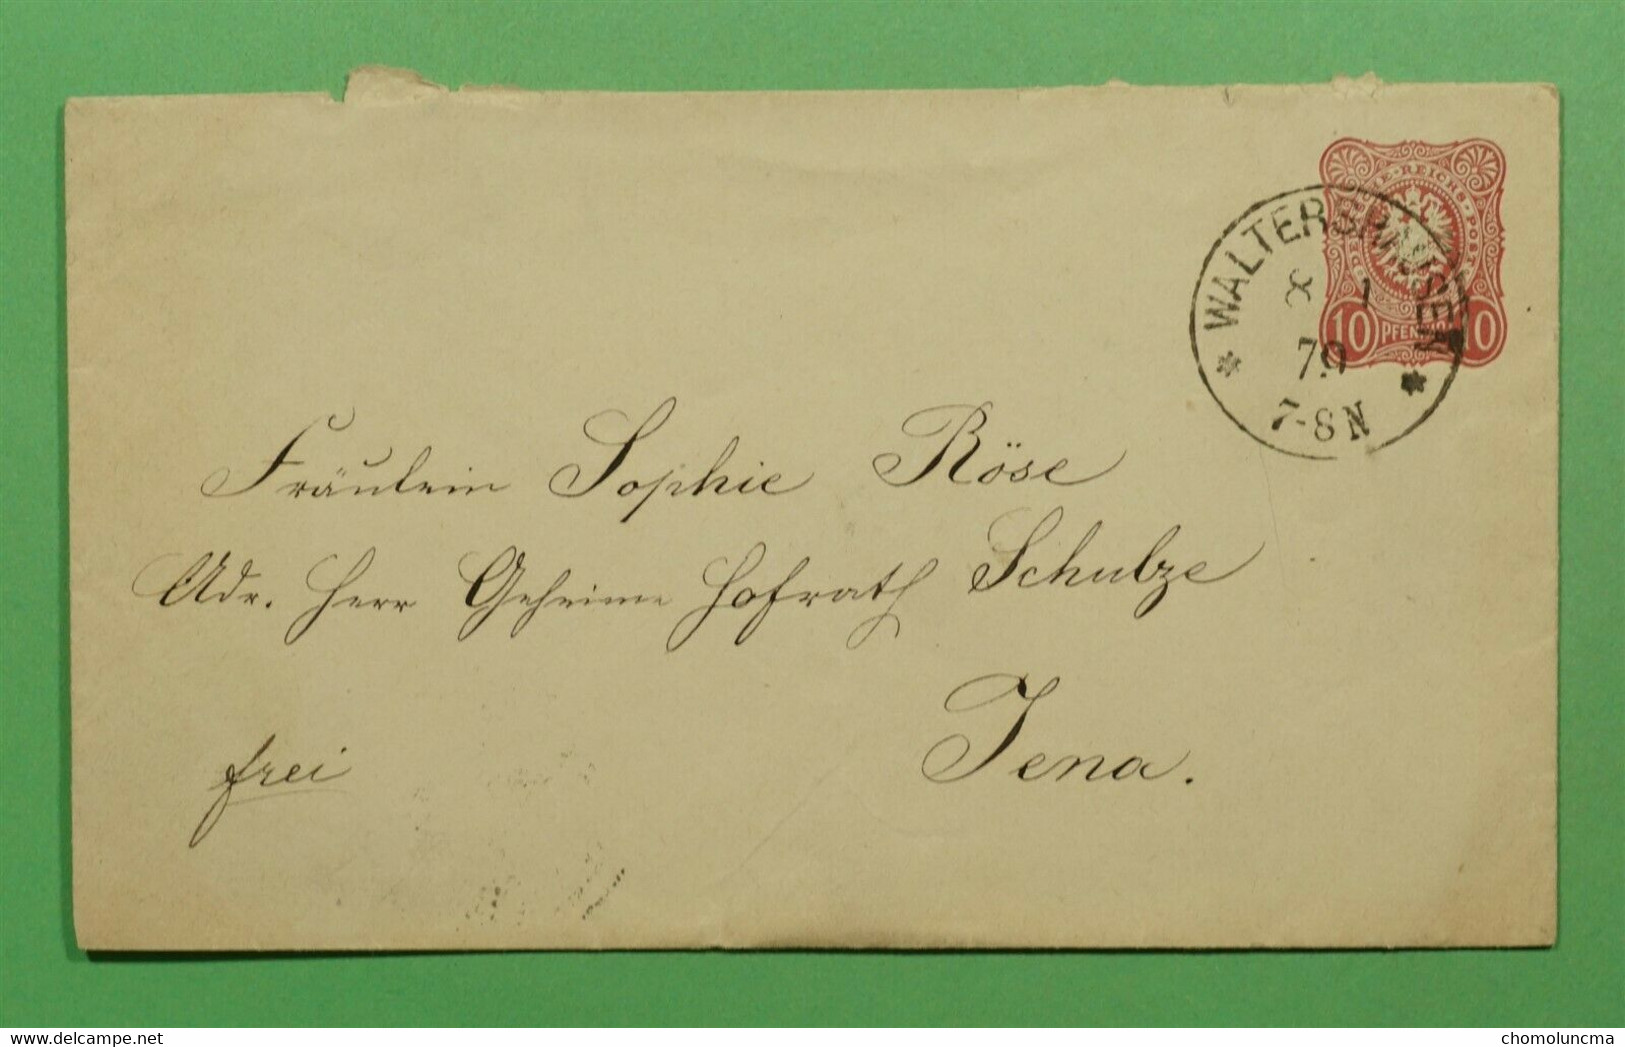 DEUTSCHE-REICHS-POST
10 PFENNIG 10
WALTERSHAUSEN
8 1
79
7-8N
Fräulein Sophie Röse
Adr. Herr Geheime Hofrath Schulze
Jena.
frei
chomoluncma